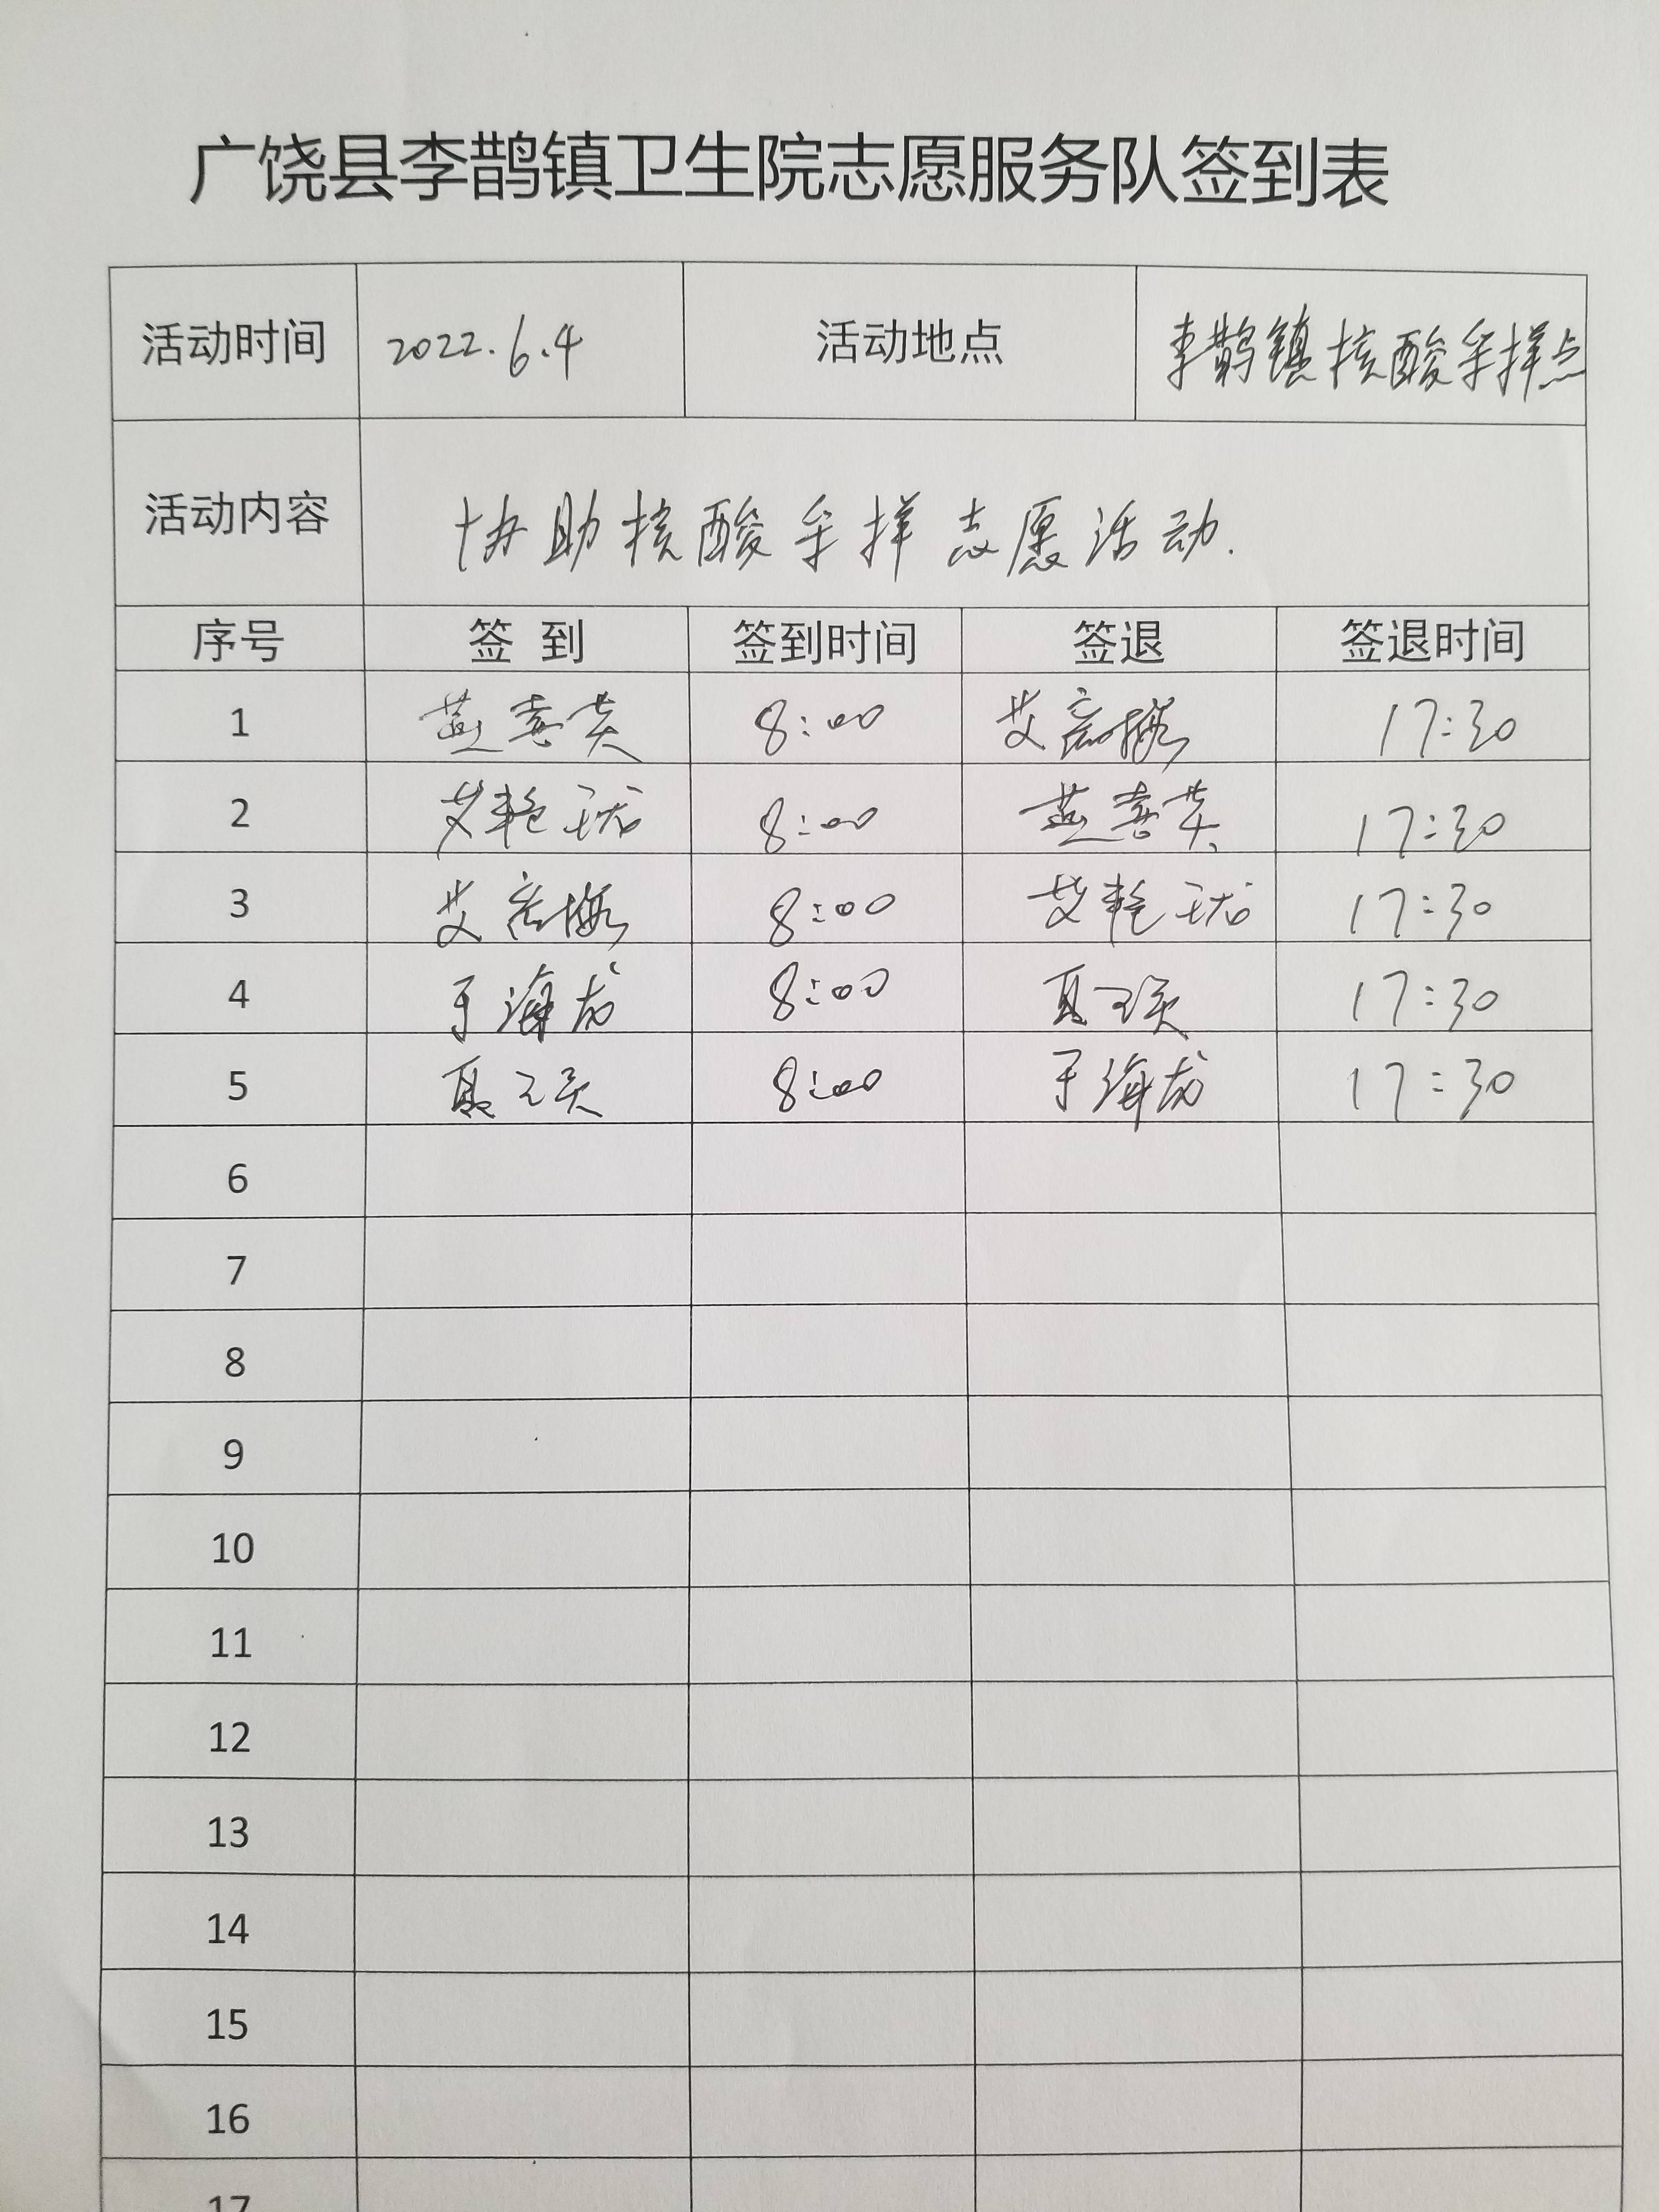 广饶县李鹊镇卫生院志愿服务队签到表
活动时间 2022.6.4 活动地点 李鹊镇核酸采样点
活动内容 协助核酸采样志愿活动.
序号 签 到 签到时间 签退 签退时间
1 燕喜英 8:00 艾 17:30
2 艾艳 8:00 燕喜英 17:30
3 艾 8:00 艾艳 17:30
4 于海龙 8:00 聂 17:30
5 聂 8:00 于海龙 17:30
6
7
8
9
10
11
12
13
14
15
16
17